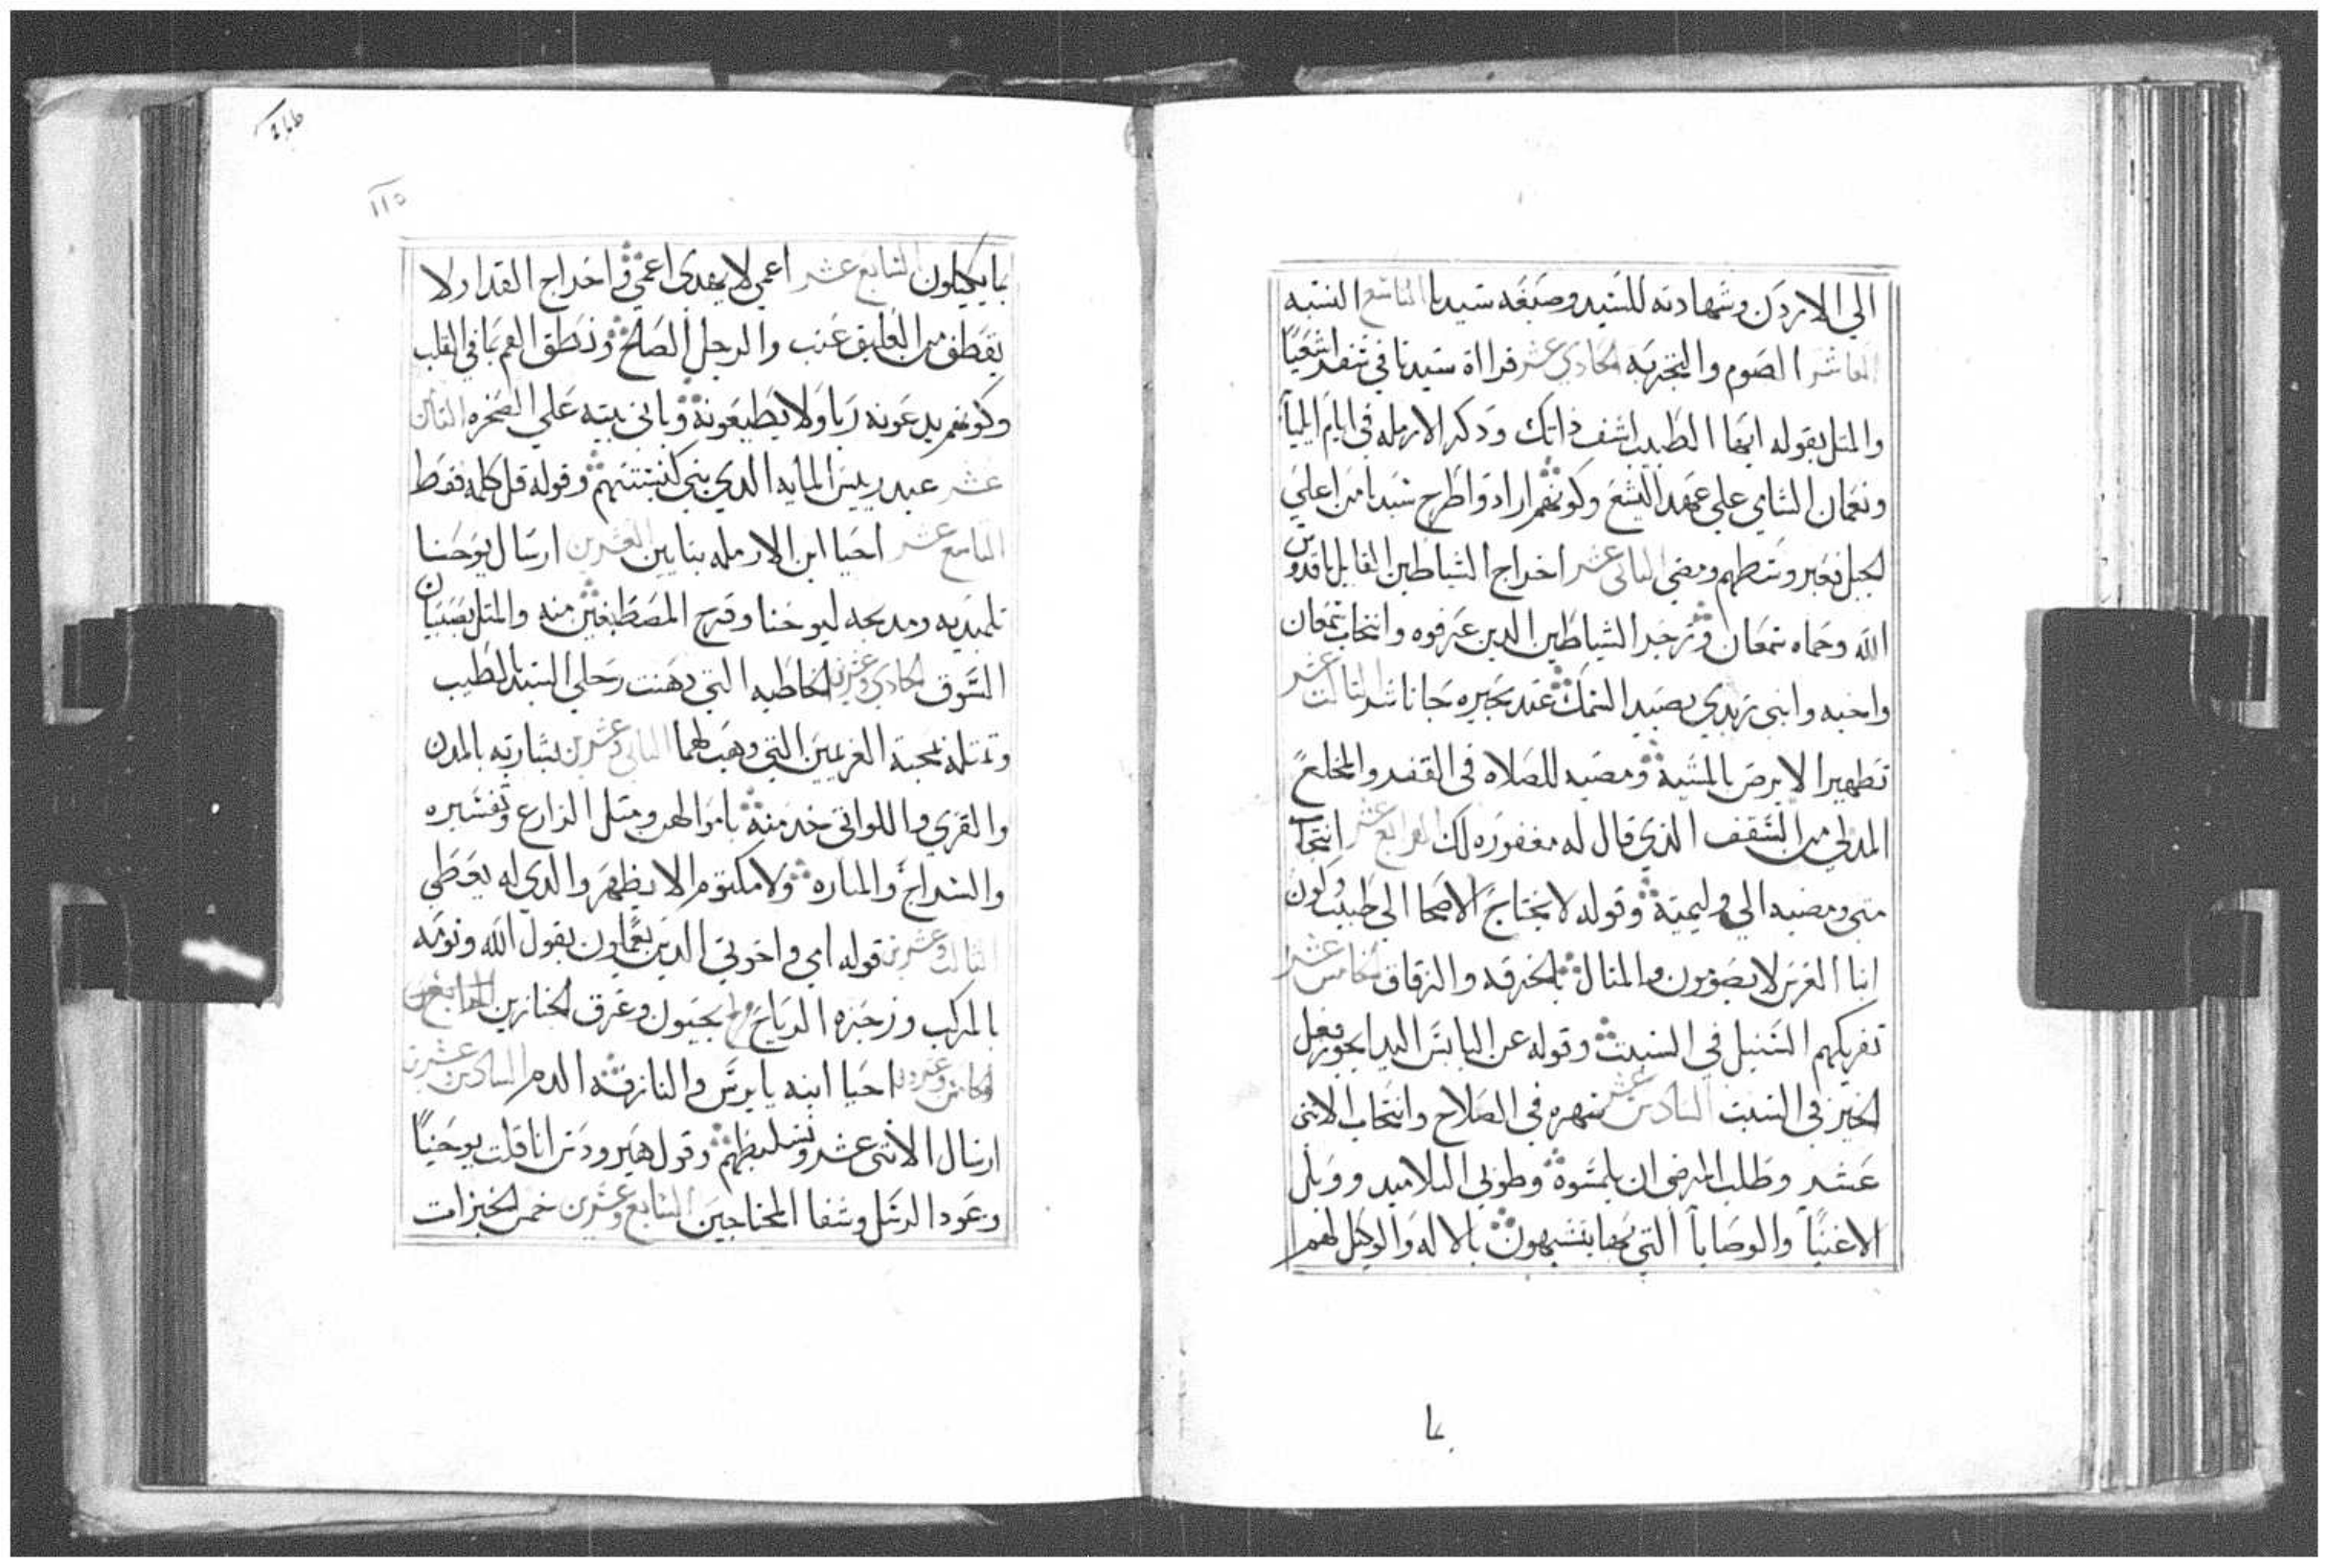 الي الاردن وشهادته للسيد وصبغه سيدنا التاسع النسبه
العاشر الصوم والتجربه الحادي عشر قرااة سيدنا في سفر اشعيا
والمتل بقوله ايها الطبيب اشف ذاتك ودكر الارمله في ايام ايليا
ونعمان الشامي علي عهد اليشع وكونهم ارادوا طرح سيدنا من اعلي
الجبل فعبر وسطهم ومضي التاني عشر اخراج الشياطين القايل يا قدوس
الله وحماه شمعان وزجر الشياطين الدين عرفوه وانتخاب شمعان
واخيه وابني زبدي بصيد السمك عند بحيره جاناشر التالت عشر
تطهير الابرص بالمشية ومضيه للصلاه في القفر والمخلع
المدلي من السقف الذي قال له مغفوره لك الرابع عشر انتخاب
متي ومضيه الي وليميتة وقوله لا يحتاج الاصحا الي طبيب وكون
ابنا العرس لا يصومون والمتال بالخرقه والزقاق الخامس عشر
تفريكهم السنبل في السبت وقوله عن اليابس اليد ايجوز فعل
الخير في السبت السادس عشر سهره في الصلاح وانتخاب الاتني
عشر وطلب المرضي ان يلمسوة وطوبي التلاميد وويل
الاغنيا والوصايا التي بها يتشبهون بالاله والوكيل لهم
بما
بما يكيلون السابع عشر اعمي لا يهدي اعمي واخراج القدا ولا
يقطف من العليق عنب والرجل الصالح ونطق الفم بما في القلب
وكونهم يدعونه ربا ولا يطيعونه وباني بيته علي الصخره التامن
عشر عبد رييس المايه الدي بني كنيستهم وقوله قل كلمه فقط
التاسع عشر احيا ابن الارمله بنايين العشرين ارسال يوحنا
تلميديه ومديحه ليوحنا وفرح المصطبغين منه والمتل بصبيان
السوق الحادي وعشرين الخاطيه التي دهنت رجلي السيد بالطيب
وتمتله بمحبة الغريمين التي وهب لهما التاني وعشرين بشارته بالمدن
والقري واللواتي خدمنه باموالهن ومتل الزارع وتفسيره
والسراج والمناره ولا مكتوم الا يظهر والدي له يعطي
التالت وعشرين قوله امي واخوتي الدين يعملون بقول الله ونومه
بالمركب وزجره الرياح بجيون وغرق الخنازير الرابع وعشرين
الخامس وعشرون احيا ابنه يايرس والنازفة الدم السادس وعشرين
ارسال الاتني عشر وتسليطهم وقول هيرودس انا قلت يوحنا
وعود الرسل وشفا المحتاجين السابع وعشرين خمس الخبزات
١١٥